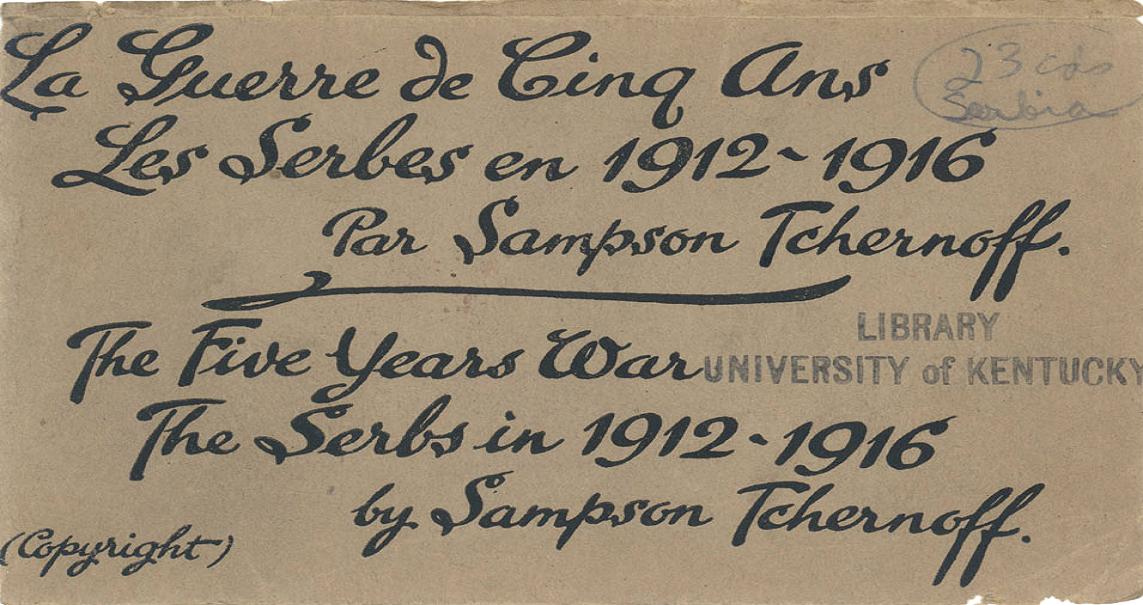 La Guerre de Cinq Ans
23 cds
Serbia
Les Serbes en 1912-1916
Par Sampson Tchernoff.
The Five Years War
LIBRARY
UNIVERSITY of KENTUCKY
The Serbs in 1912-1916
by Sampson Tchernoff.
(Copyright)